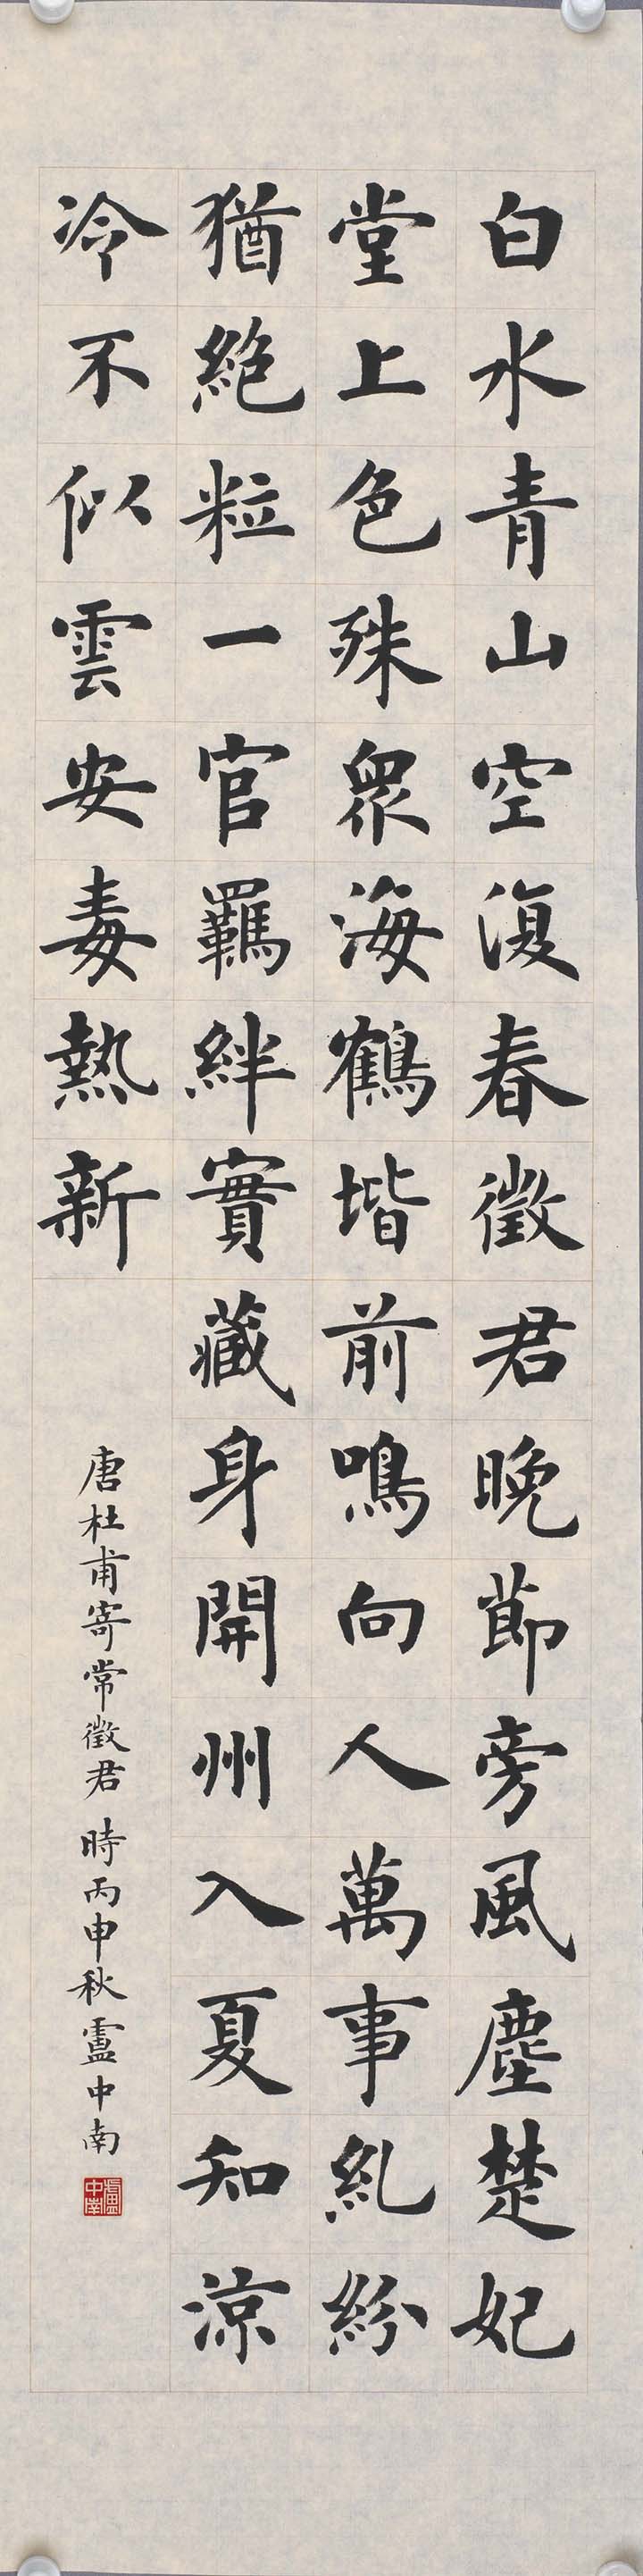 白水青山空復春徵君晚節旁風塵楚妃
堂上色殊衆海鶴堦前鳴向人萬事糺紛
猶絕粒一官羈絆實藏身開州入夏知涼
冷不似雲安毒熱新
唐杜甫寄常徵君 時丙申秋盧中南
盧中南